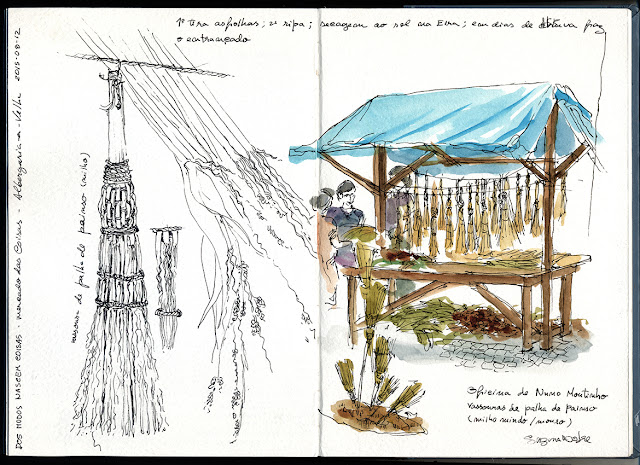 1º tira as folhas; 2º ripa; secagem ao sol na Eira; em dias de chuva faz
o entrançado
DOS MODOS NASCEM COISAS - mercado das Coisas - Albergaria-a-Velha 2015-08-12
vassoura de palha de painço (milho)
Oficina de Nuno Moutinho
Vassouras de palha de painço
(milho miúdo/mouro)